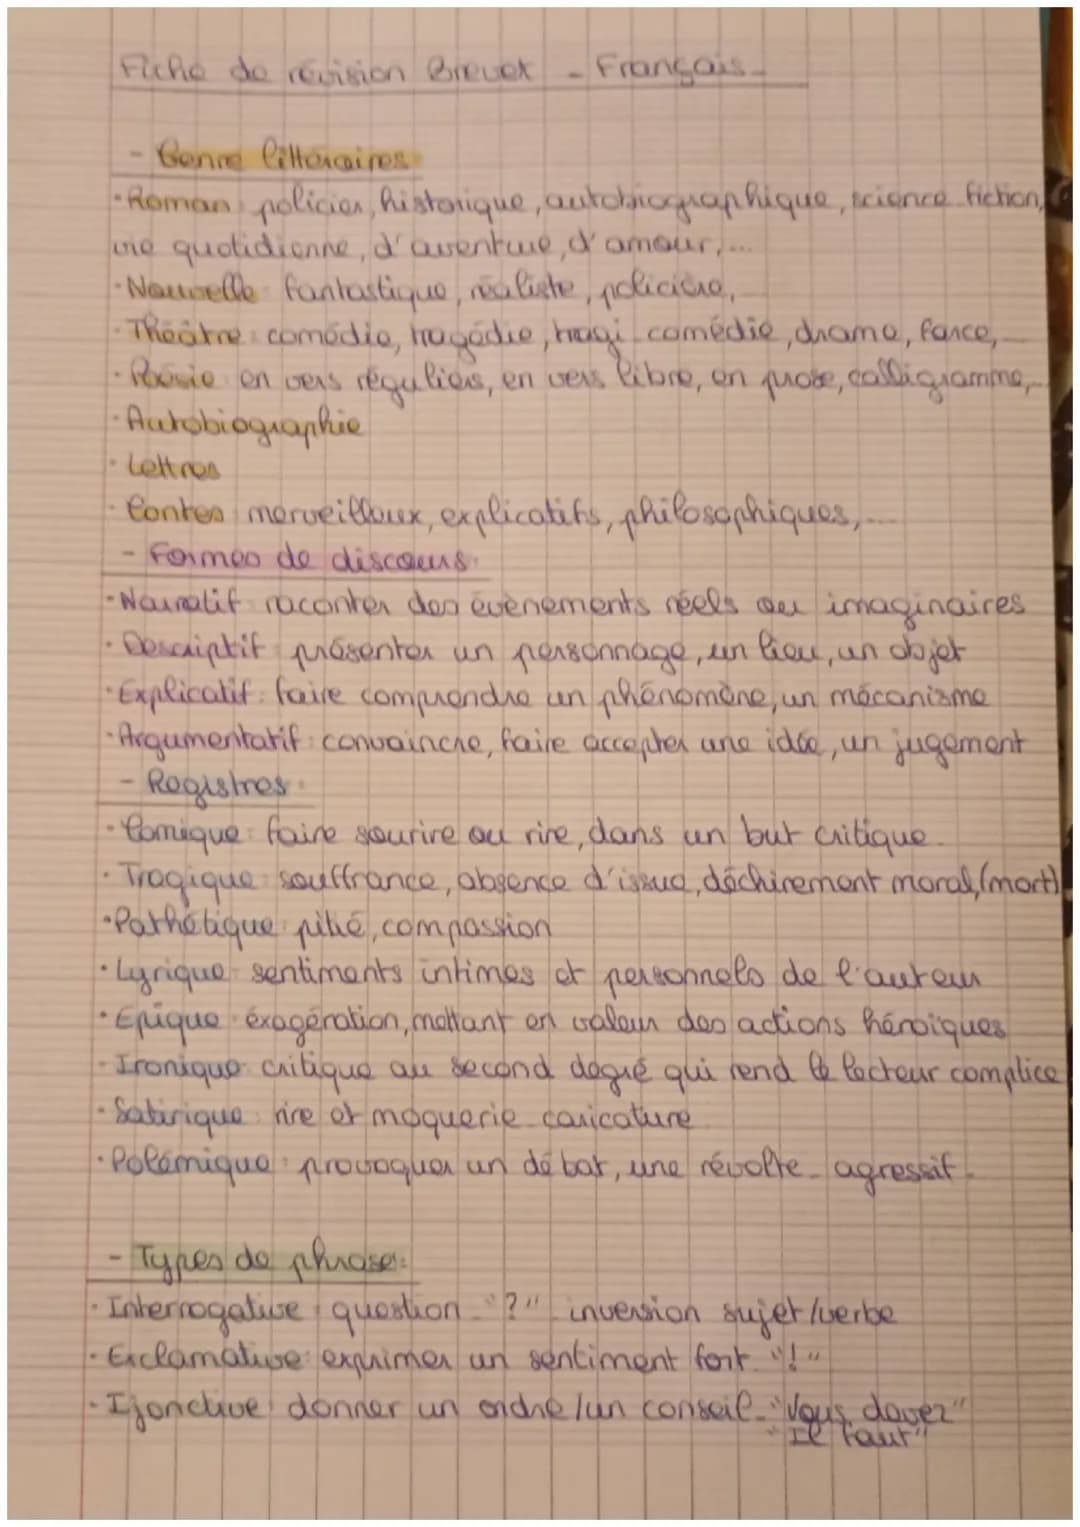 Fiche de révision Brevet - Français -
- Genre littéraires
• Roman : policier, historique, autobiographique, science fiction,
vie quotidienne, d'aventure, d'amour,...
• Nouvelle : fantastique, réaliste, policière,...
• Théâtre : comédie, tragédie, tragi-comédie, drame, farce,...
• Poésie : en vers réguliers, en vers libre, en prose, calligramme,...
• Autobiographie
• Lettres
• Contes : merveilloux, explicatifs, philosophiques,...
- Formes de discours :
• Narratif : raconter des évènements réels ou imaginaires
• Descriptif : présenter un personnage, un lieu, un objet
• Explicatif : faire comprendre un phénomène, un mécanisme
• Argumentatif : convaincre, faire accepter une idée, un jugement
- Registres :
• Comique : faire sourire ou rire, dans un but critique.
• Tragique : souffrance, absence d'issue, déchirement moral, (mort)
• Pathétique : pitié, compassion
• Lyrique : sentiments intimes et personnels de l'auteur
• Epique : éxagération, mettant en valeur des actions héroïques
• Ironique : critique au second degré qui rend le lecteur complice
• Satirique : rire et moquerie - caricature
• Polémique : provoquer un débat, une révolte - agressif -
- Types de phrase :
• Interrogative : question - "?" - inversion sujet/verbe
• Exclamative : exprimer un sentiment fort - "!"
• Ijonctive : donner un ordre/un conseil - "Vous devez"
"Il faut"